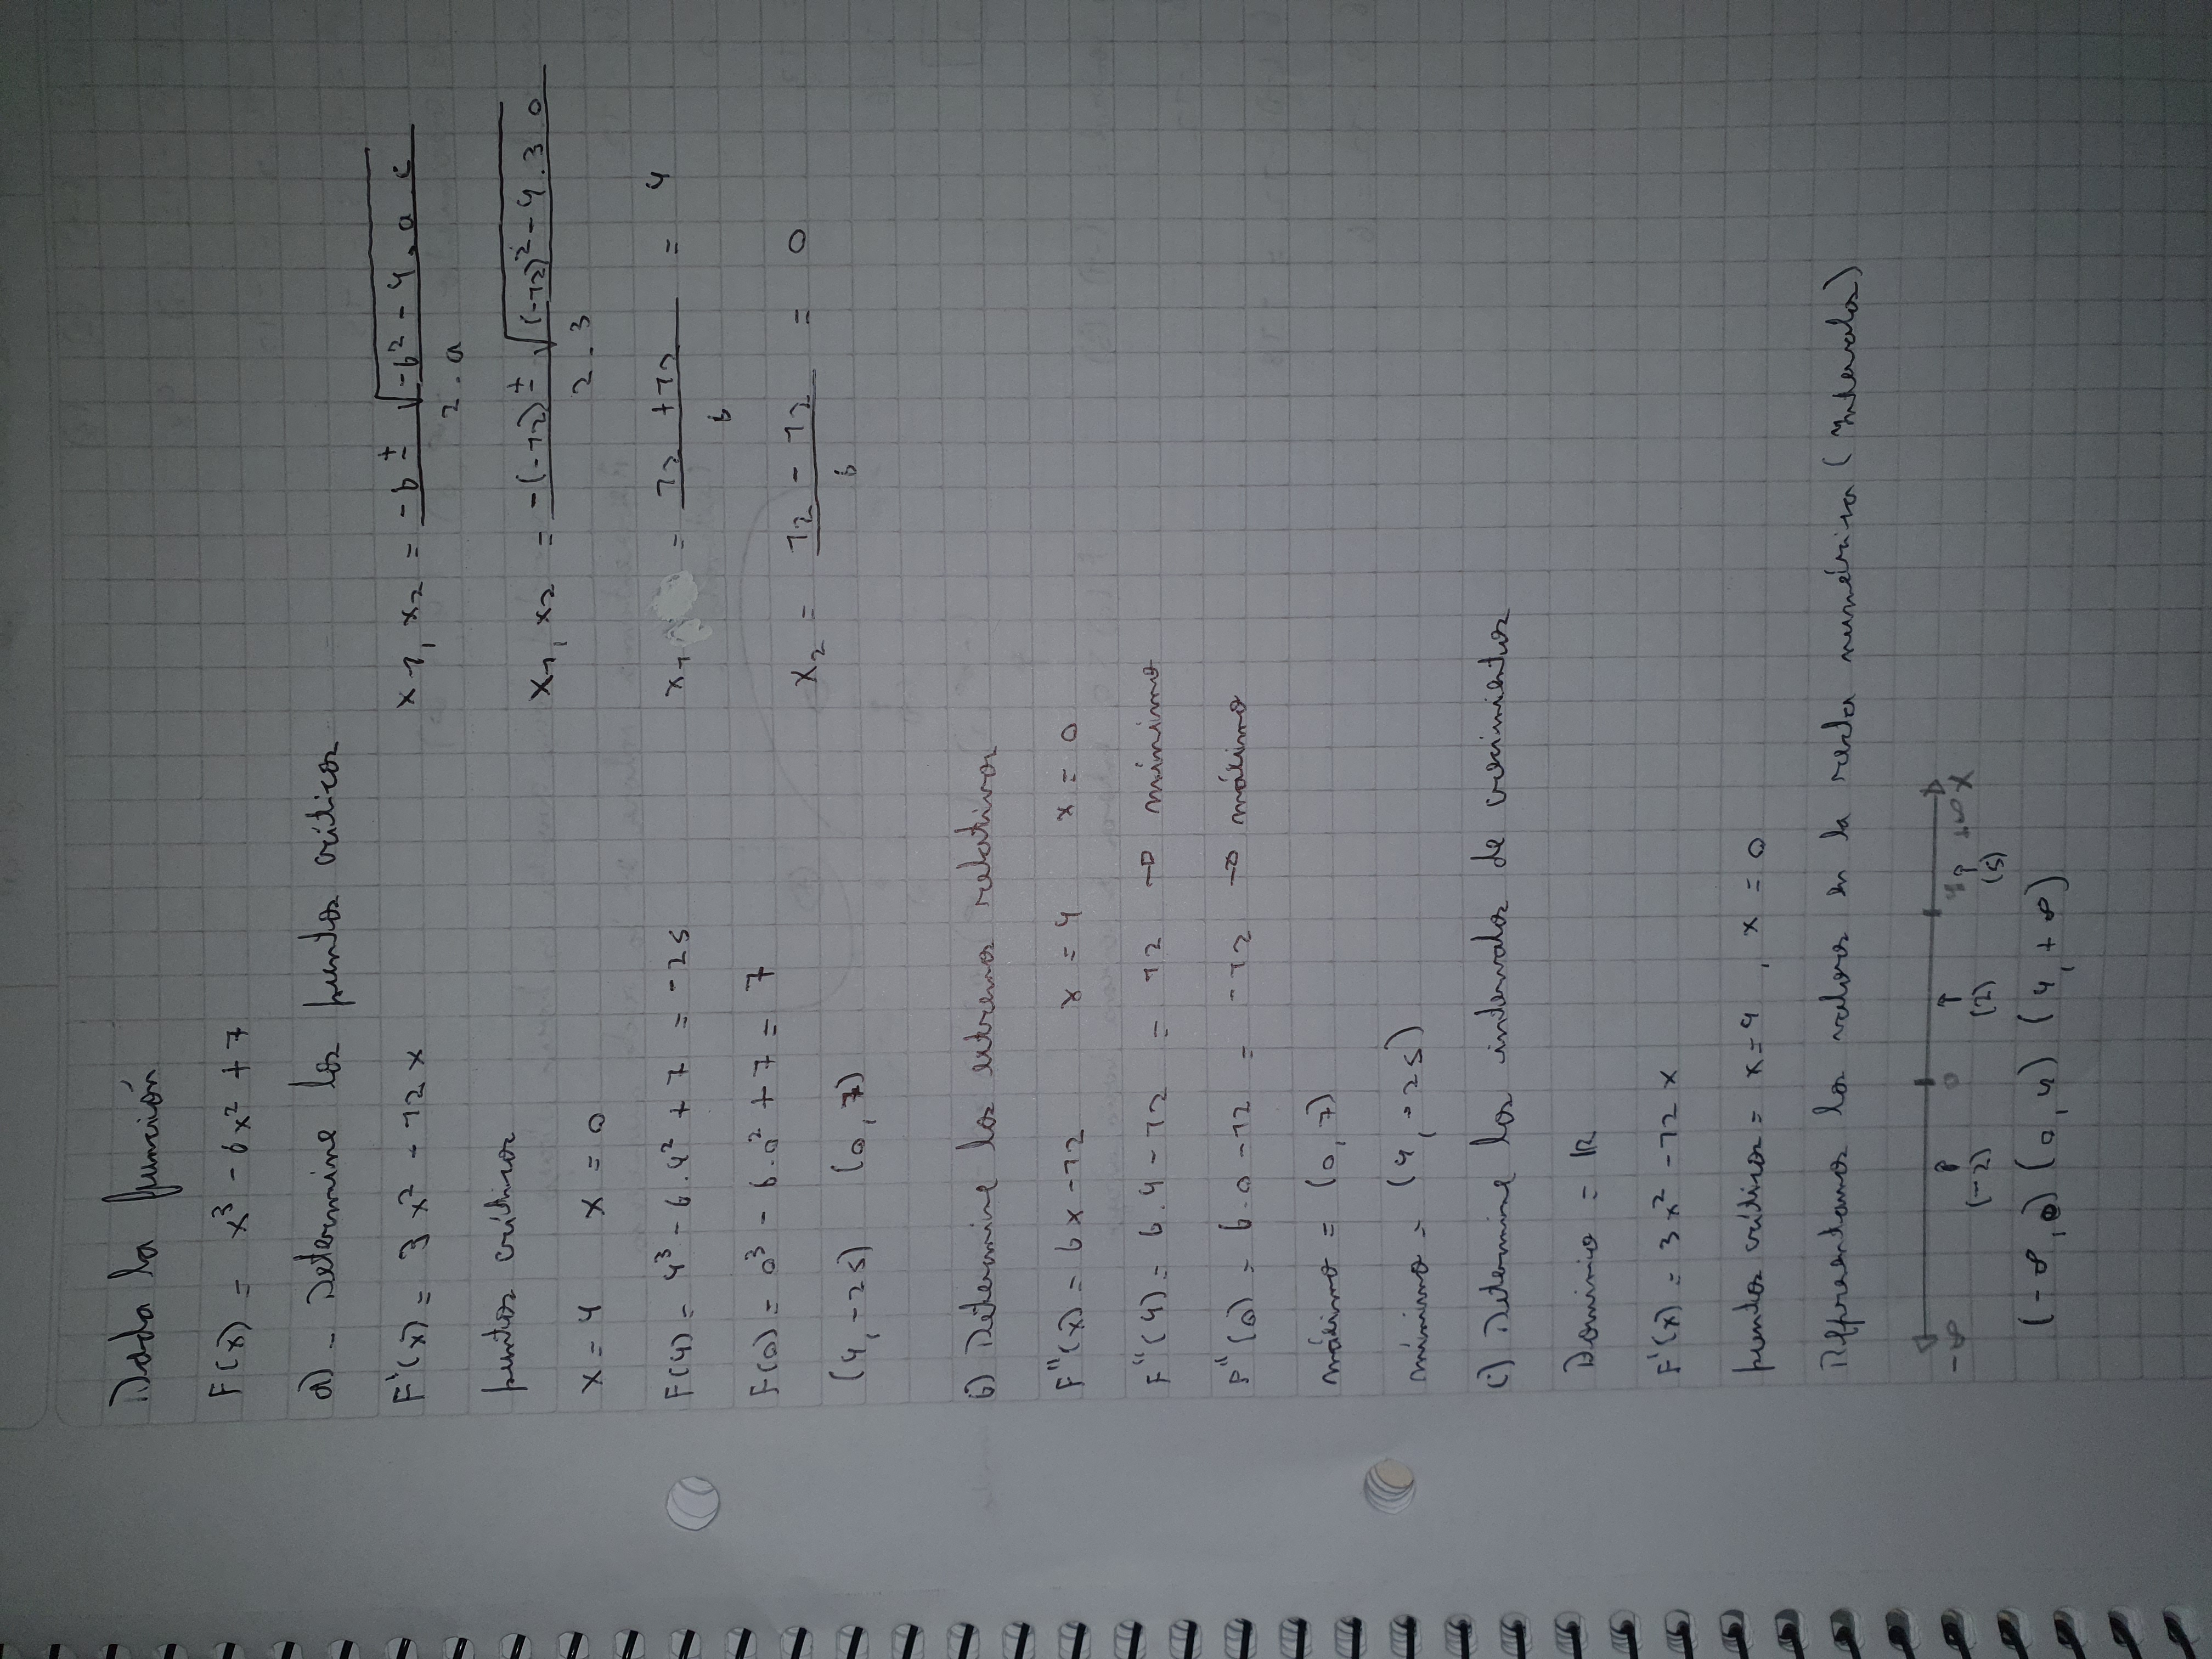 Dada la función
F(x) = x³ - 6x² + 7
a) - Determine los puntos críticos
F'(x) = 3x² - 12x
puntos críticos
x = 4 x = 0
F(4) = 4³ - 6.4² + 7 = -25
F(0) = 0³ - 6.0² + 7 = 7
(4, -25) (0, 7)
x1, x2 = -b ± √-b² - 4.a.c
2.a
x1, x2 = -(-12) ± √(-12)² - 4.3.0
2.3
x1 = 12 + 12 = 4
6
x2 = 12 - 12 = 0
6
b) Determine los extremos relativos
F''(x) = 6x - 12 x = 4 x = 0
F''(4) = 6.4 - 12 = 12 → mínimo
F''(0) = 6.0 - 12 = -12 → máximo
máximo = (0, 7)
mínimo = (4, -25)
c) Determine los intervalos de crecimientos
Dominio = ℝ
F'(x) = 3x² - 12x
puntos críticos = x = 4, x = 0
Representamos los valores en la recta numérica (Intervalos)
-∞ 0 4 +∞ x
(-2) (2) (5)
(-∞, 0) (0, 4) (4, +∞)